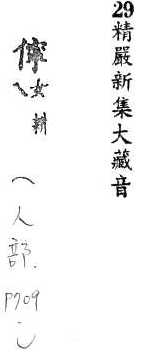 29精嚴新集大藏音
女耕
(人部. P709)